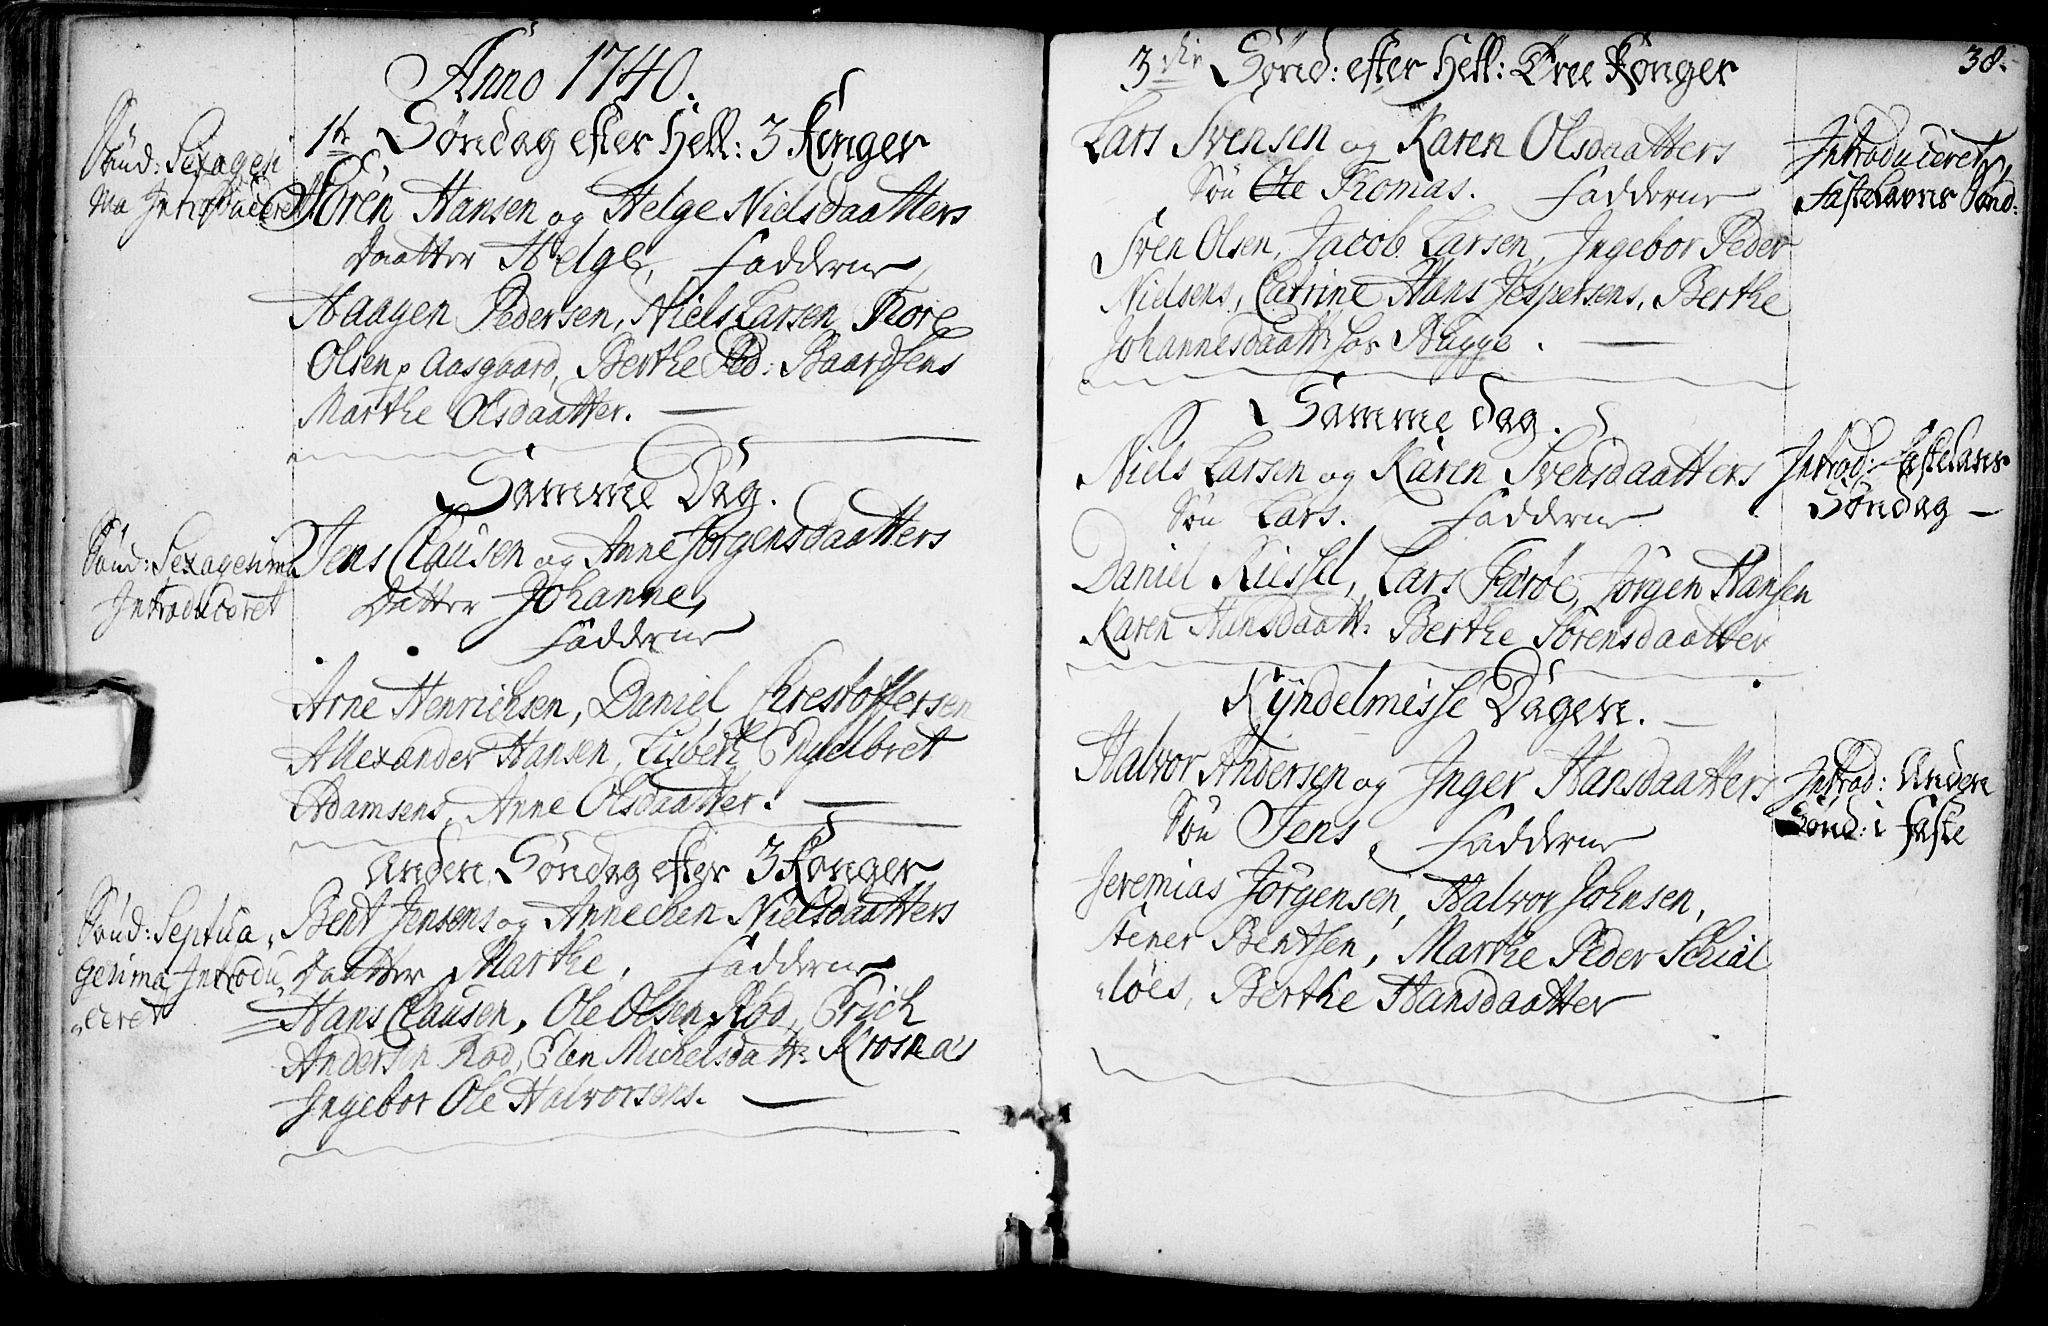 Anno 1740.
1te Søndag efter Hell: 3 Konger
Sønd: Sexagesi
ma Introduceret
Søren Hansen og Helge Nielsdaatters
Daatter Helge, Fadderne
Haagen Pedersen, Niels Larsen, Thore
Olsen p Aasgaard, Berthe Ped: Baardsens
Marthe Olsdaatter.
Samme Dag.
Sønd: Sexagesima
Introduceret
Jens Clausen og Anne Jørgensdaatters
Datter Johanne,
Fadderne
Arne Henrichsen, Daniel Christoffersen
Allexander Hansen, Lisbeth Engelbret
Adamsens, Anne Olsdaatter.
Anden Søndag efter 3 Konger
Sønd: Septua„
gesima Introdu„
„ceret
Bent Jensens og Annechen Nielsdaatters
Daatter Marthe, Fadderne
Hans Clausen, Ole Olsen Rød, Erich
Andersen Rød, Elen Michelsdatt:
Ingebor Ole Halvorsens.
38.
3die Sønd: efter Hell: Tree Konger
Lars Svensen og Karen Olsdaatters
Søn Ole Thomas. Fadderne
Introduceret
Fastelavns Sønd:
Sven Olsen, Jacob Larsen, Ingebor Peder
Nielsens, Catrine Hans Jespersens, Berthe
Johannesdaatt: hos Bagge.
Samme Dag.
Niels Larsen og Karen Svensdaatters
Søn Lars. Fadderne
Introd: Fastelavns
Søndag
Daniel Kiessel, Lars Færøe, Jørgen Hansen
Karen Hansdaatt: Berthe Sørensdaatter
Kyndelmisse Dagen.
Halvor Andersen og Inger Hansdaatters
Søn Jens, Fadderne
Introd: Anden
Sønd: i Faste
Jeremias Jørgensen, Halvor Johnsen,
Stener Bentsen, Marthe Peder Schial
„løes, Berthe Hansdaatter